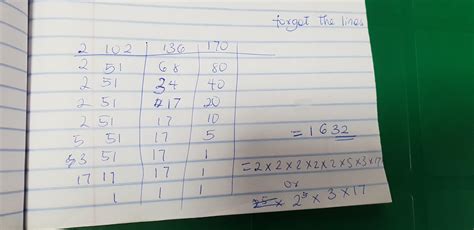 forgot the lines
2 102 136 170
2 51 68 80
2 51 34 40
2 51 17 20
2 51 17 10
5 51 17 5
3 51 17 1
17 17 17 1
1 1 1
= 1632
= 2 x 2 x 2 x 2 x 2 x 5 x 3 x 17
or
2⁵ x 3 x 17